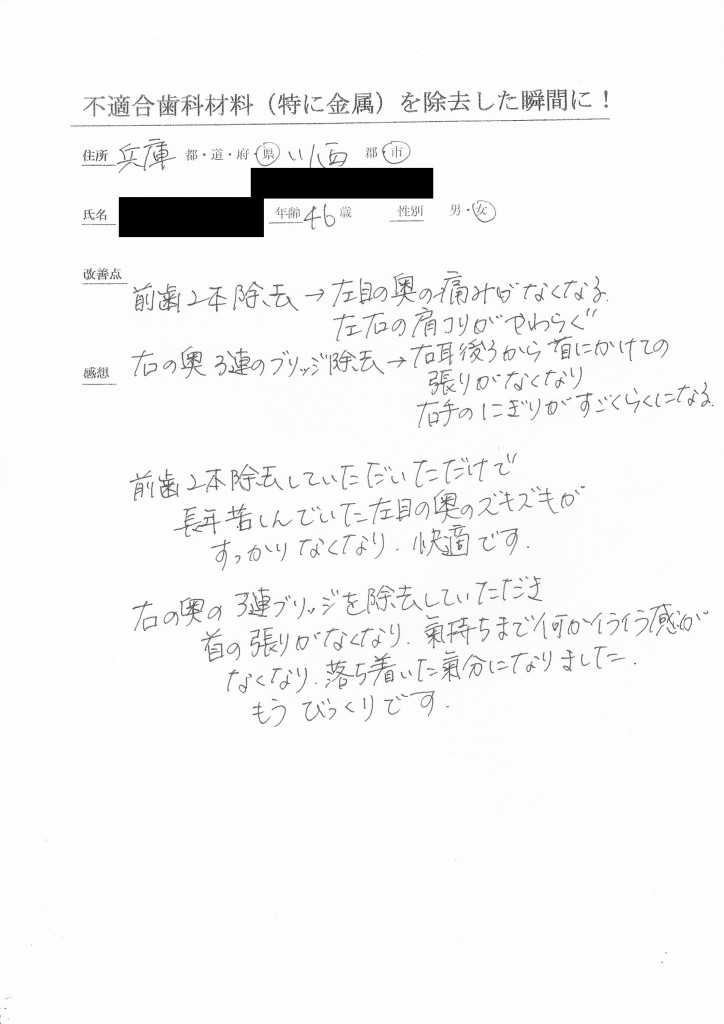 不適合歯科材料（特に金属）を除去した瞬間に！
住所 兵庫 都・道・府・県 川西 郡・市
氏名 年齢 46 歳 性別 男・女
改善点
前歯2本除去→左目の奥の痛みがなくなる.
左右の肩コリがやわらぐ
感想
右の奥3連のブリッジ除去→右耳後ろから首にかけての
張りがなくなり
右手のにぎりがすごくらくになる.
前歯2本除去していただいただけで
長年苦しんでいた左目の奥のズキズキが
すっかりなくなり.快適です.
右の奥の3連ブリッジを除去していただき
首の張りがなくなり.氣持ちまで何かイライラ感が
なくなり.落ち着いた氣分になりました.
もうびっくりです.